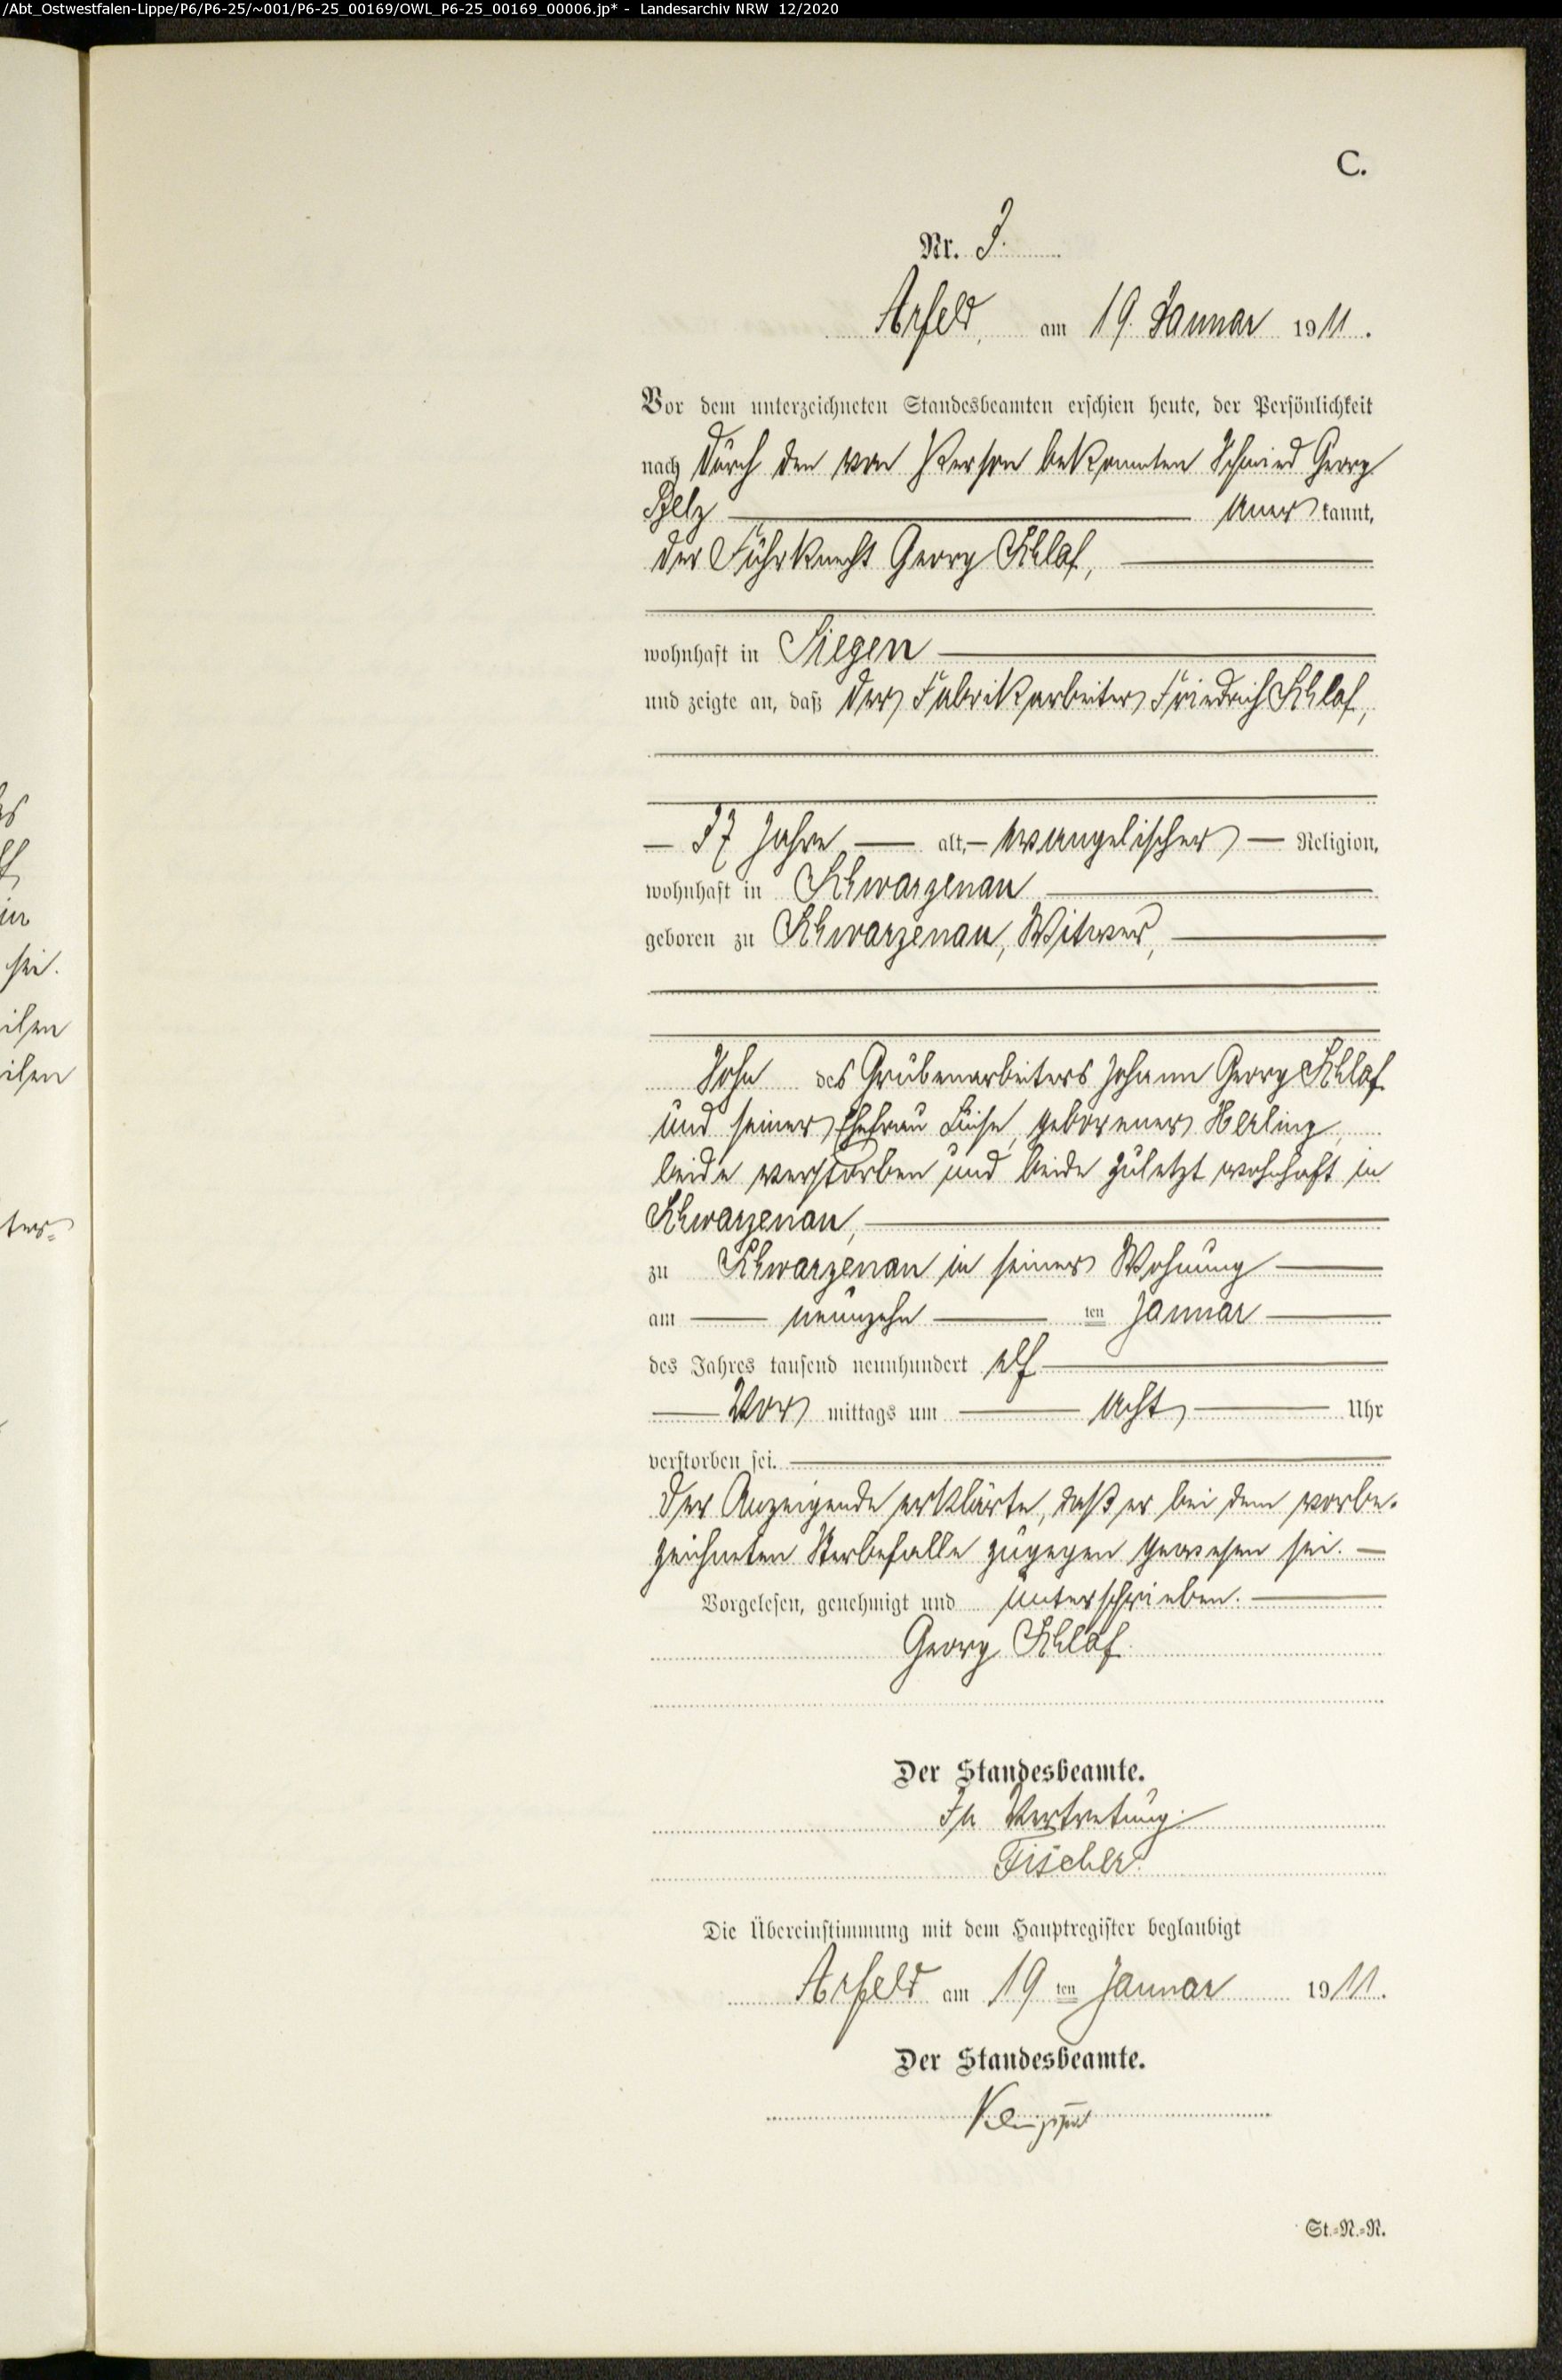 /Abt_Ostwestfalen-Lippe/P6/P6-25/~001/P6-25_00169/OWL_P6-25_00169_00006.jp* - Landesarchiv NRW 12/2020
C.
Nr. 3.
Arfeld, am 19. Januar 1911.
Vor dem unterzeichneten Standesbeamten erschien heute, der Persönlichkeit
nach durch den von Person bekannten Schmied Georg
Pelz anerkannt,
der Fuhrknecht Georg Schlaf,
wohnhaft in Siegen
und zeigte an, daß der Fabrikarbeiter Friedrich Schlaf,
37 Jahre alt, evangelischer Religion,
wohnhaft in Schwarzenau
geboren zu Schwarzenau, Witwer,
Sohn des Grubenarbeiters Johann Georg Schlaf
und seiner Ehefrau Luise, geborener Herling,
beide verstorben und beide zuletzt wohnhaft in
Schwarzenau,
zu Schwarzenau in seiner Wohnung
am neunzehn ten Januar
des Jahres tausend neunhundert elf
Vor mittags um acht Uhr
verstorben sei.
Der Anzeigende erklärte, daß er bei dem vorbe-
zeichneten Sterbefalle zugegen gewesen sei.
Vorgelesen, genehmigt und unterschrieben.
Georg Schlaf.
Der Standesbeamte.
In Vertretung.
Fischer.
Die Übereinstimmung mit dem Hauptregister beglaubigt
Arfeld am 19 ten Januar 1911.
Der Standesbeamte.
St.-N.-R.
sei.
ter-